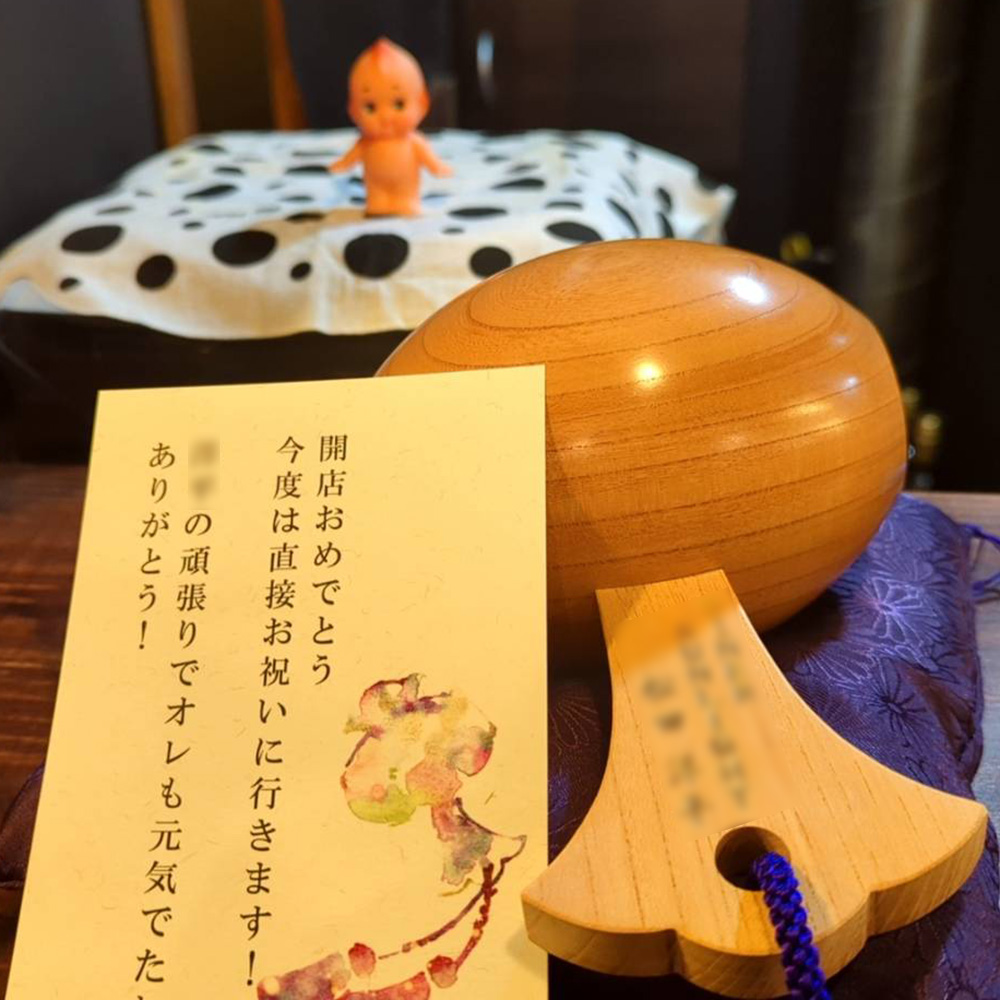 開店おめでとう
今度は直接お祝いに行きます!
の頑張りでオレも元気でた
ありがとう!